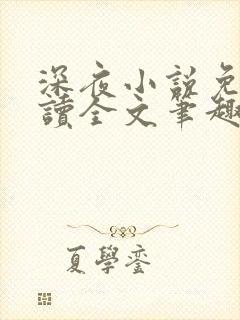 深夜小說免
讀全文筆趣
夏學鑾